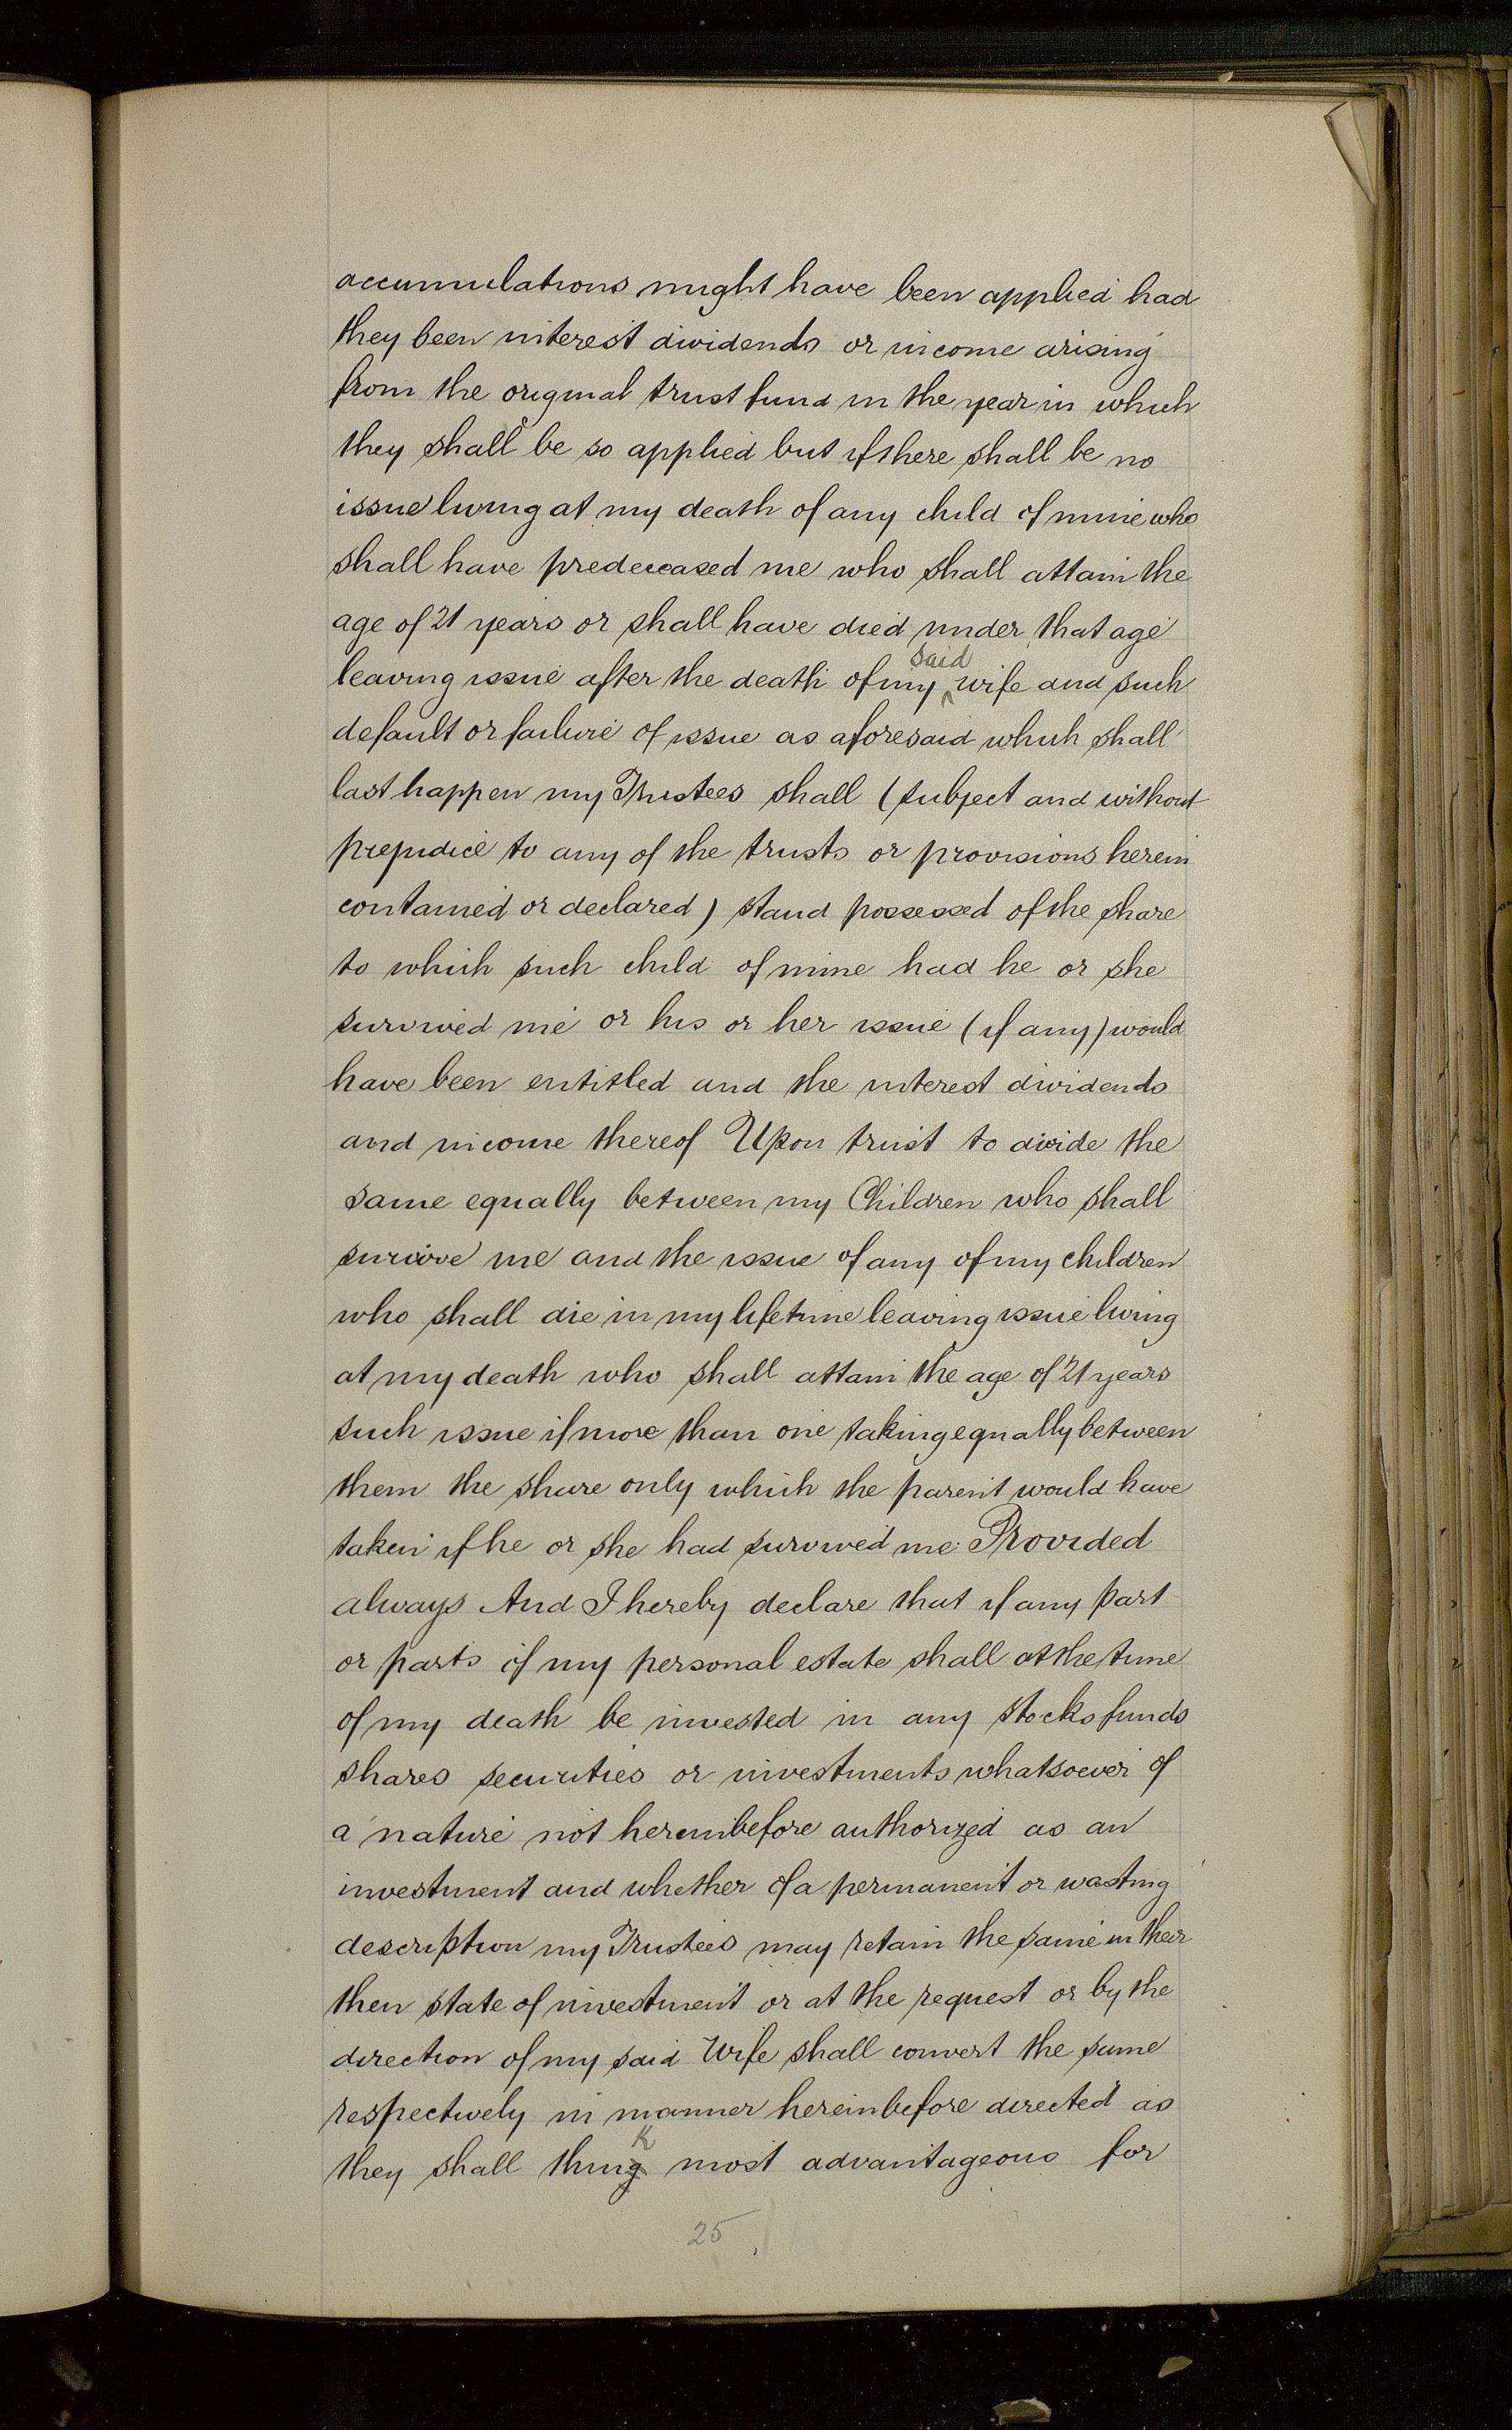 accumulations might have been applied had
they been interest dividends or income arising
from the original trust fund in the year in which
they shall be so applied but if there shall be no
issue living at my death of any child of mine who
shall have predeceased me who shall attain the
age of 21 years or shall have died under that age
leaving issue after the death of my said wife and such
default or failure of issue as aforesaid which shall
last happen my Trustees shall (subject and without
prejudice to any of the trusts or provisions herein
contained or declared) stand possessed of the share
to which such child of mine had he or she
survived me or his or her issue (if any) would
have been entitled and the interest dividends
and income thereof Upon trust to divide the
same equally between my Children who shall
survive me and the issue of any of my children
who shall die in my lifetime leaving issue living
at my death who shall attain the age of 21 years
such issue if more than one taking equally between
them the share only which the parent would have
taken if he or she had survived me Provided
always And I hereby declare that if any part
or parts of my personal estate shall at the time
of my death be invested in any stocks funds
shares securities or investments whatsoever of
a nature not hereinbefore authorized as an
investment and whether of a permanent or wasting
description my Trustees may retain the same in their
then state of investment or at the request or by the
direction of my said Wife shall convert the same
respectively in manner hereinbefore directed as
they shall think most advantageous for
25